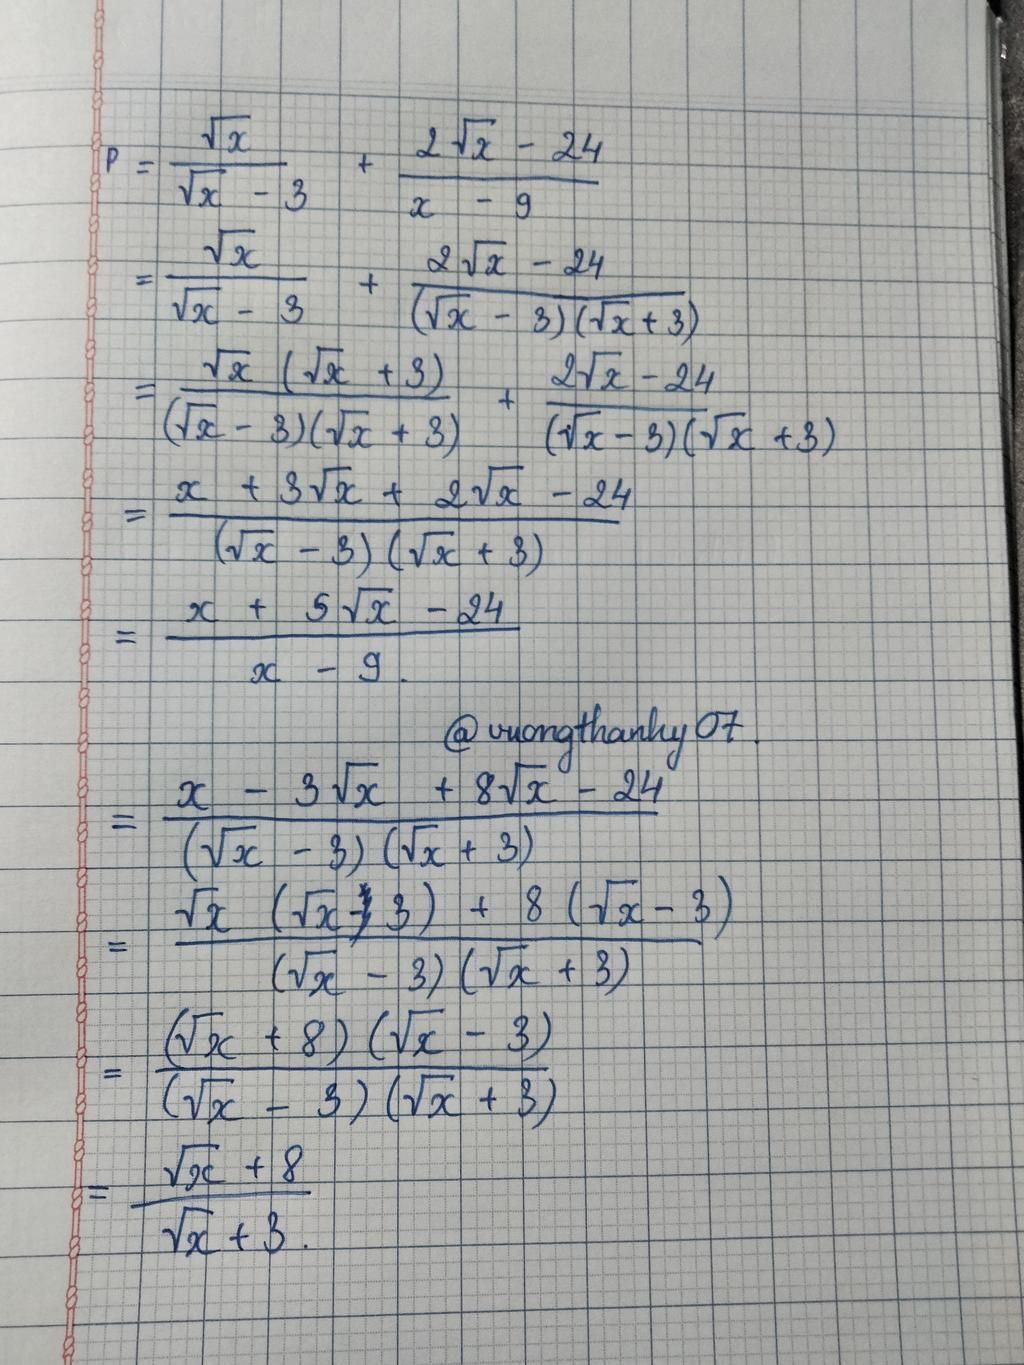 P = √x / (√x - 3) + (2√x - 24) / (x - 9)
= √x / (√x - 3) + (2√x - 24) / ((√x - 3)(√x + 3))
= √x (√x + 3) / ((√x - 3)(√x + 3)) + (2√x - 24) / ((√x - 3)(√x + 3))
= (x + 3√x + 2√x - 24) / ((√x - 3)(√x + 3))
= (x + 5√x - 24) / (x - 9).
@vuongthanhy07.
= (x - 3√x + 8√x - 24) / ((√x - 3)(√x + 3))
= (√x (√x - 3) + 8(√x - 3)) / ((√x - 3)(√x + 3))
= (√x + 8)(√x - 3) / ((√x - 3)(√x + 3))
= (√x + 8) / (√x + 3).